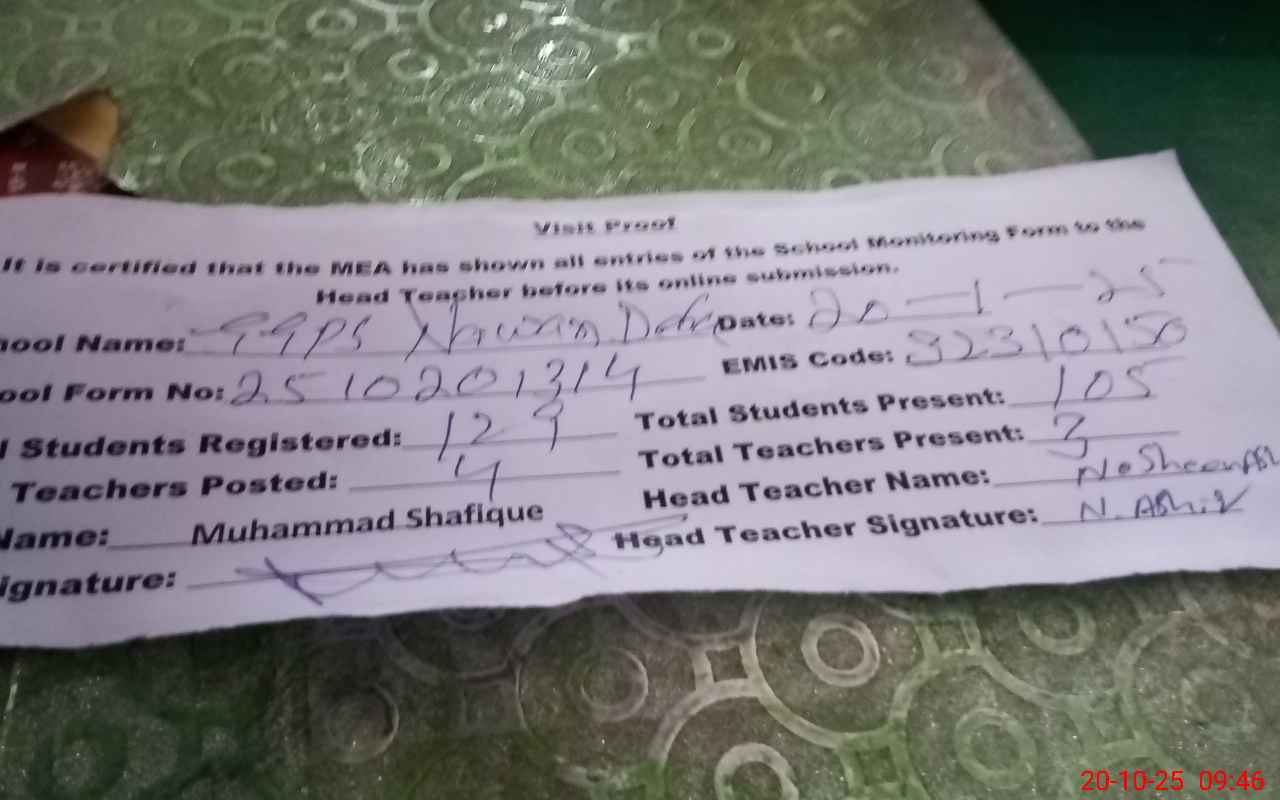 Visit Proof
It is certified that the MEA has shown all entries of the School Monitoring Form to the
Head Teacher before its online submission.
hool Name: GGPS Date: 20-1-25
ool Form No: 2510201314 EMIS Code: 32310150
l Students Registered: 129 Total Students Present: 105
Teachers Posted: 4 Total Teachers Present: 3
Name: Muhammad Shafique Head Teacher Name: Nosheen
ignature: Head Teacher Signature: N. Ashiq
20-10-25 09:46